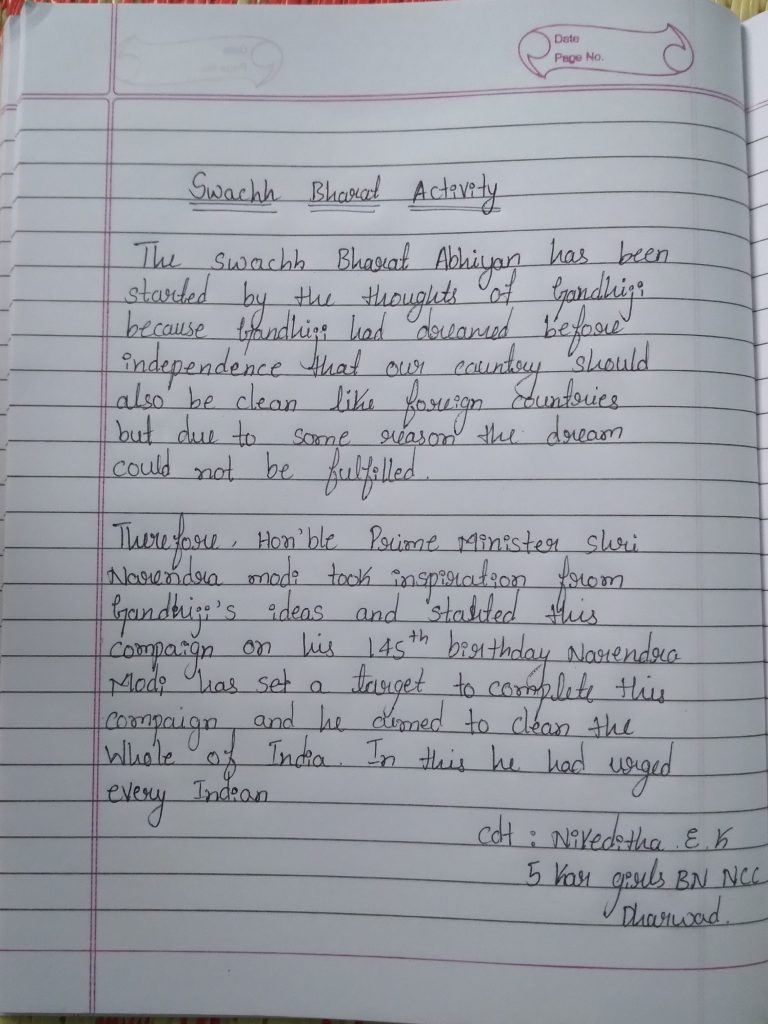 Date
Page No.
Swachh Bharat Activity
The Swachh Bharat Abhiyan has been
started by the thoughts of Gandhiji
because Gandhiji had dreamed before
independence that our country should
also be clean like foreign countries
but due to some reason the dream
could not be fulfilled.
Therefore, Hon'ble Prime Minister Shri
Narendra modi took inspiration from
Gandhiji's ideas and started this
compaign on his 145th birthday Narendra
Modi has set a target to complete this
compaign and he aimed to clean the
Whole of India. In this he had urged
every Indian
CDT : Niveditha . E. K
5 Kar girls BN NCC
Dharwad.